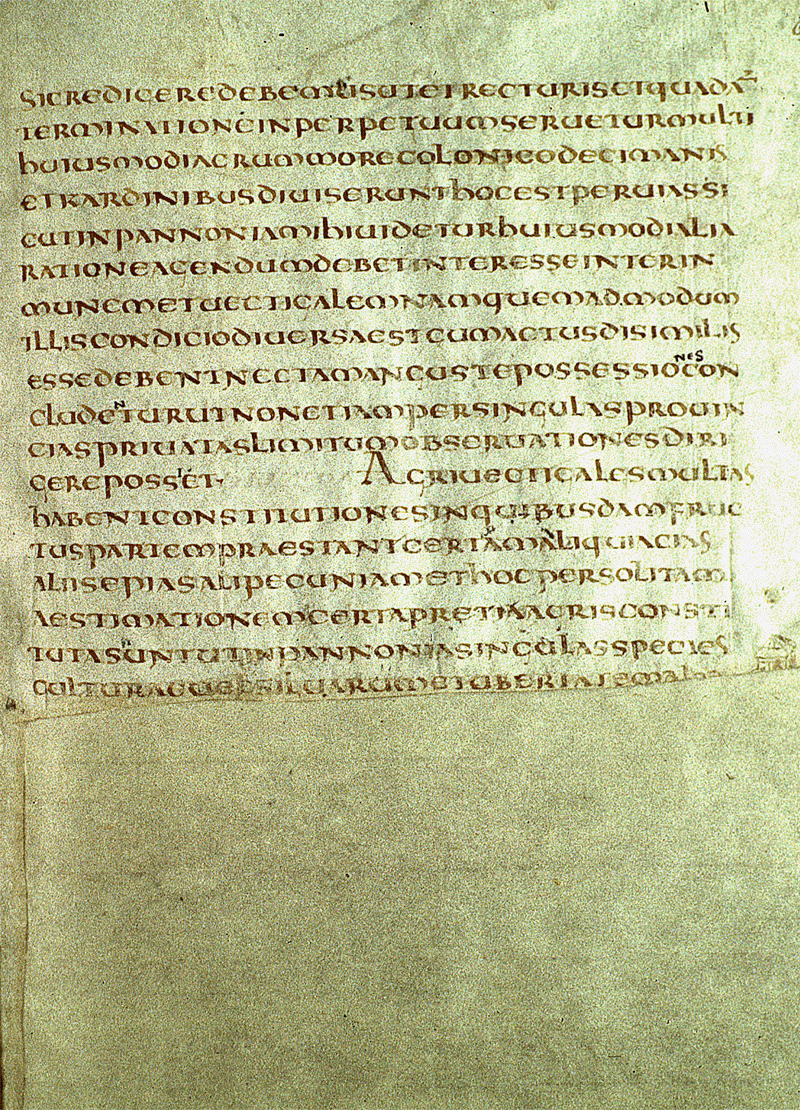 SICREDIGEREDEBEMUSUTETRECTURISETQUADĀ
TERMINATIONEINPERPETUUMSERUETURMULTI
HUIUSMODIAGRUMMORECOLONICODECIMANIS
ETKARDINIBUSDIUISERUNTHOCESTPERUIASSI
CUTINPANNONIAMIHIUIDETURHUIUSMODIALIA
RATIONEAGENDUMDEBETINTERESSEINTERIN
MUNEMETUECTIGALEMNAMQUEMADMODUM
ILLISCONDICIODIUERSAESTCUMACTUSDISIMILIS
ESSEDEBENTNECTAMANGUSTEPOSSESSIONESCON
CLUDENTURUTNONETIAMPERSINGULASPROUIN
CIASPRIUATASLIMITUMOBSERUATIONESDIRI
GEREPOSSET· AGRIUECTIGALESMULTAS
HABENTCONSTITUTIONESINQUIBUSDAMFRUC
TUSPARTEMPRAESTANTCERTAMALIQUIACIAS
ALIISEPIASALIPECUNIAMETHOCPERSOLITAM
AESTIMATIONEMCERTAPRETIAAGRISCONSTI
TUTASUNTUTINPANNONIASINGULASSPECIES